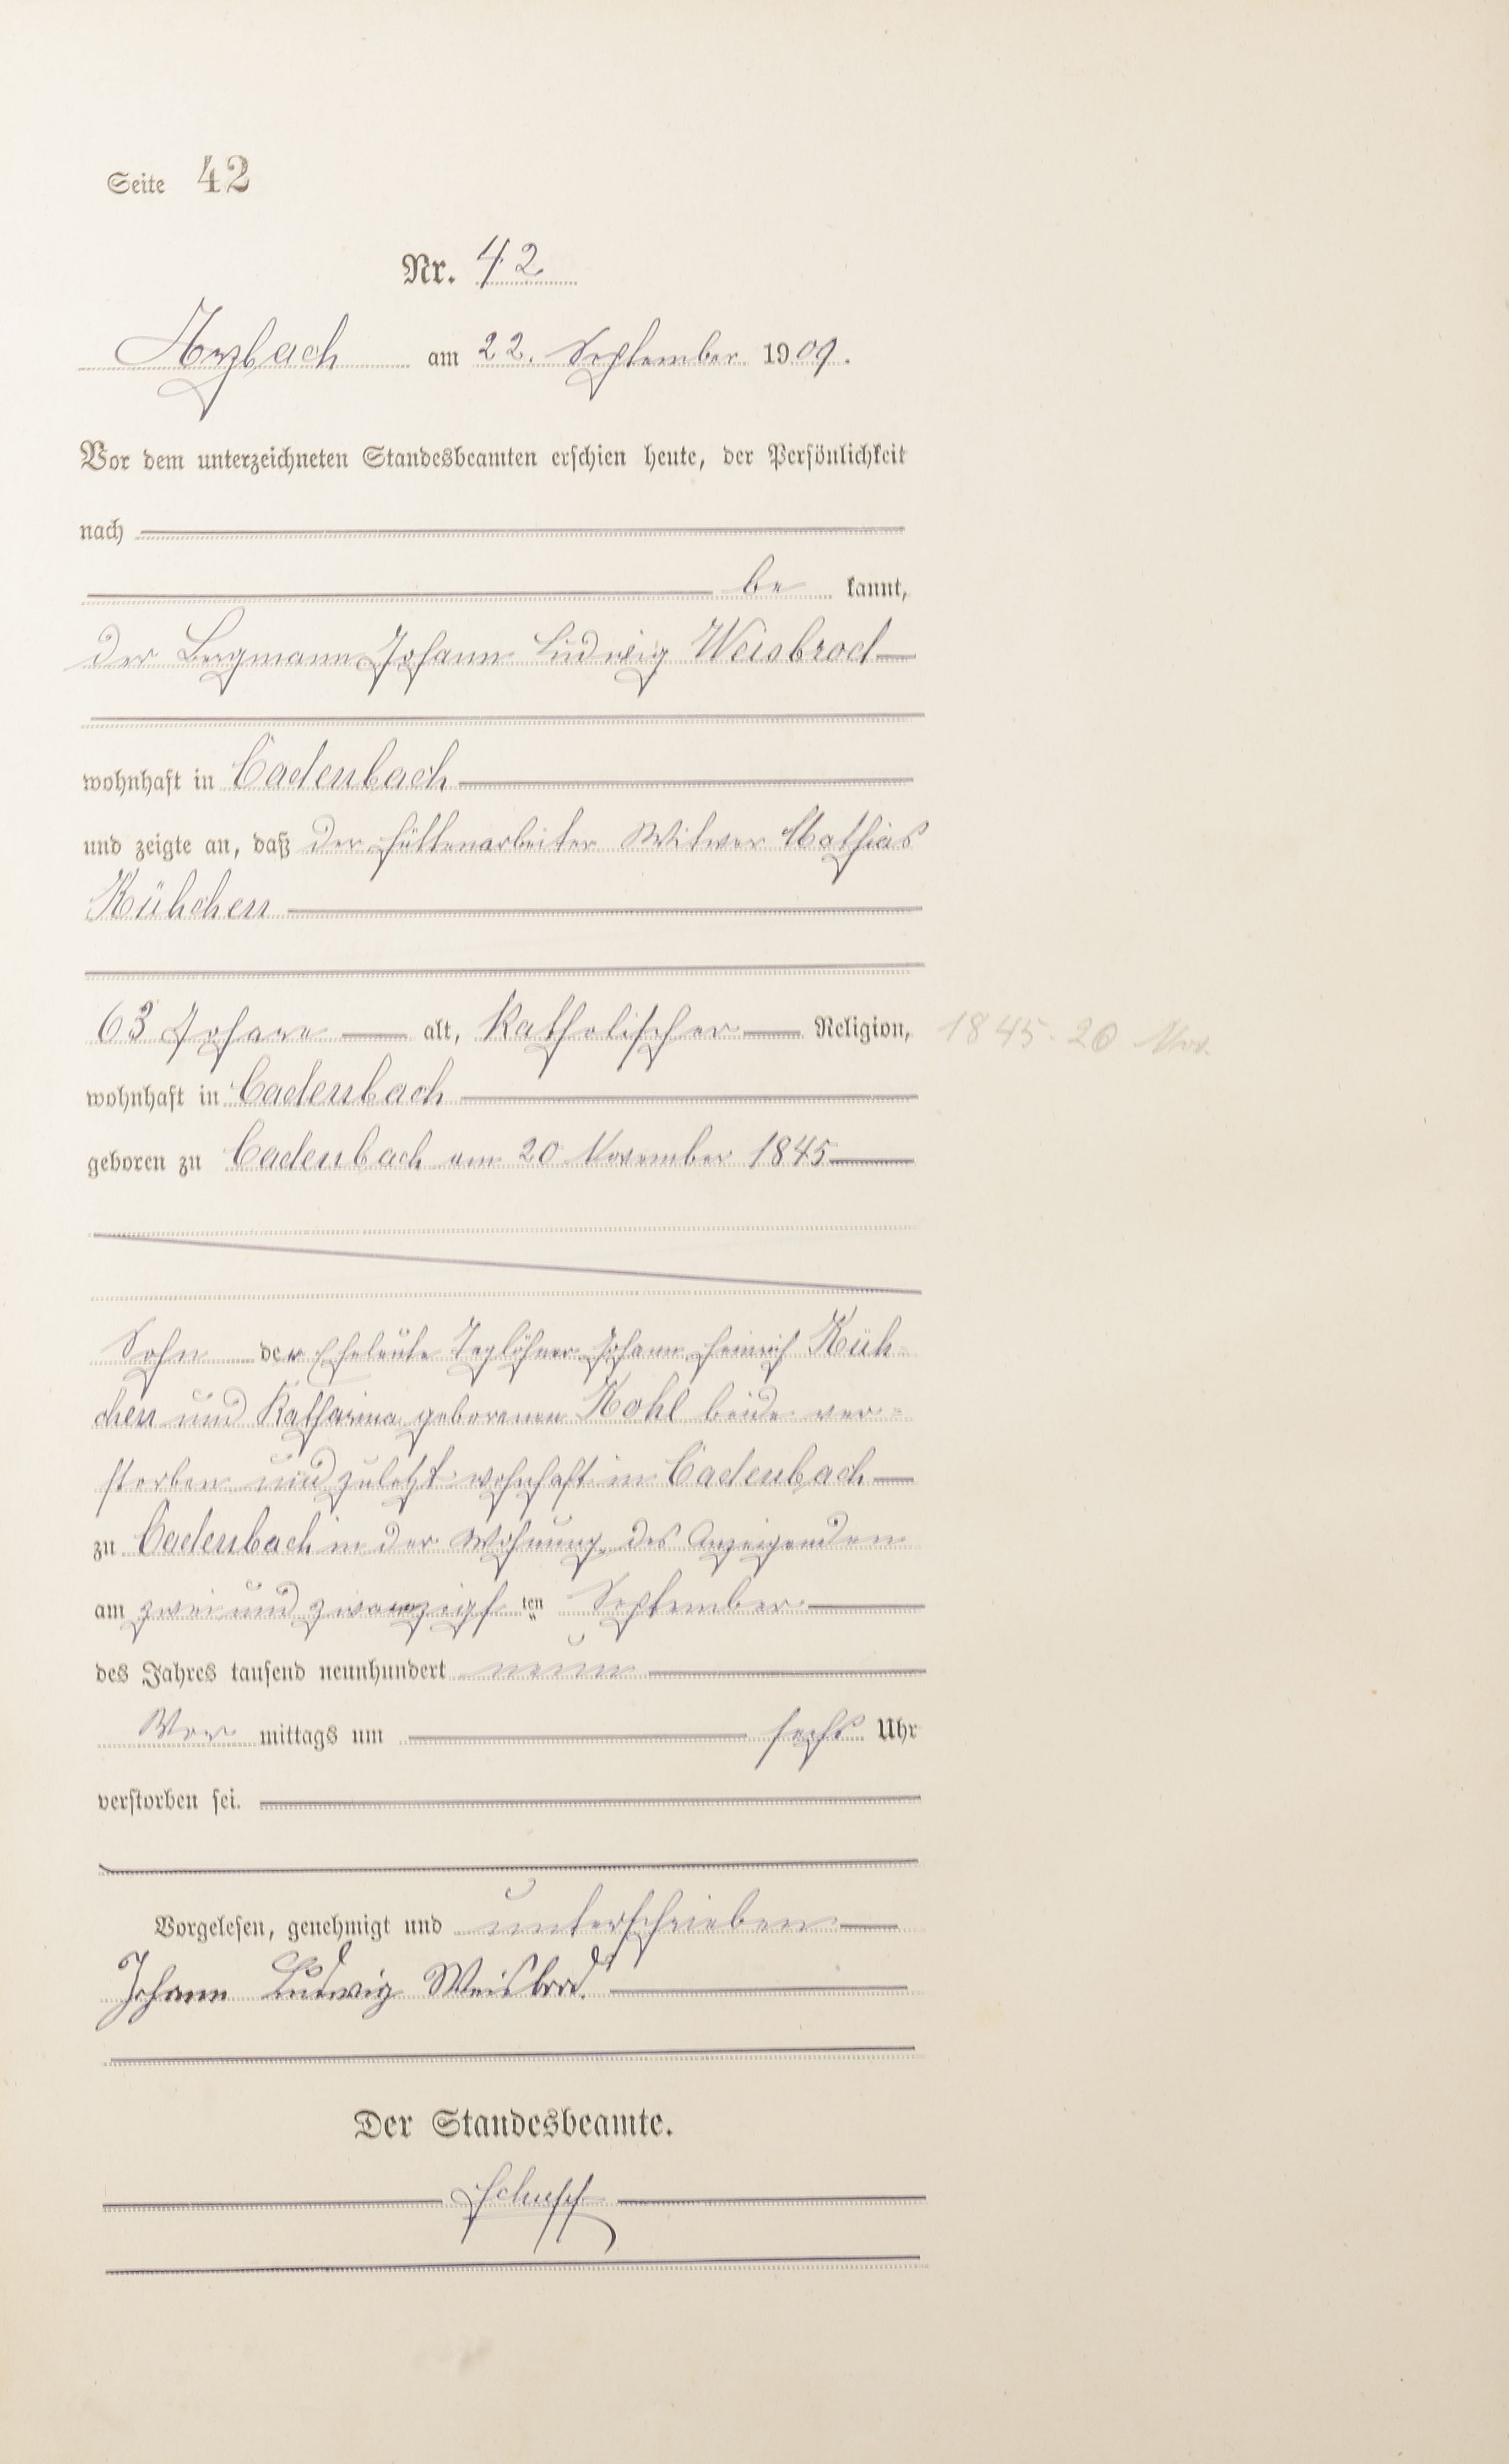 Seite 42
Nr. 42
Arzbach am 22. September 1909.
Vor dem unterzeichneten Standesbeamten erschien heute, der Persönlichkeit
nach
be kannt,
der Bergmann Johann Ludwig Weisbrod
wohnhaft in Cadenbach
und zeigte an, daß der Hüttenarbeiter Witwer Mathias
Kühchen
63 Jahre alt, katholischer Religion, 1845. 20 Nov.
wohnhaft in Cadenbach
geboren zu Cadenbach am 20 November 1845
Sohn der Eheleute Taglöhner Johann Heinrich Küh-
chen und Katharina geborenen Kohl beide ver-
storben und zuletzt wohnhaft in Cadenbach
zu Cadenbach in der Wohnung des Anzeigenden
am zwei und zwanzigsten September
des Jahres tausend neunhundert neun
Vor mittags um sechs Uhr
verstorben sei.
Vorgelesen, genehmigt und unterschrieben
Johann Ludwig Weisbrod.
Der Standesbeamte.